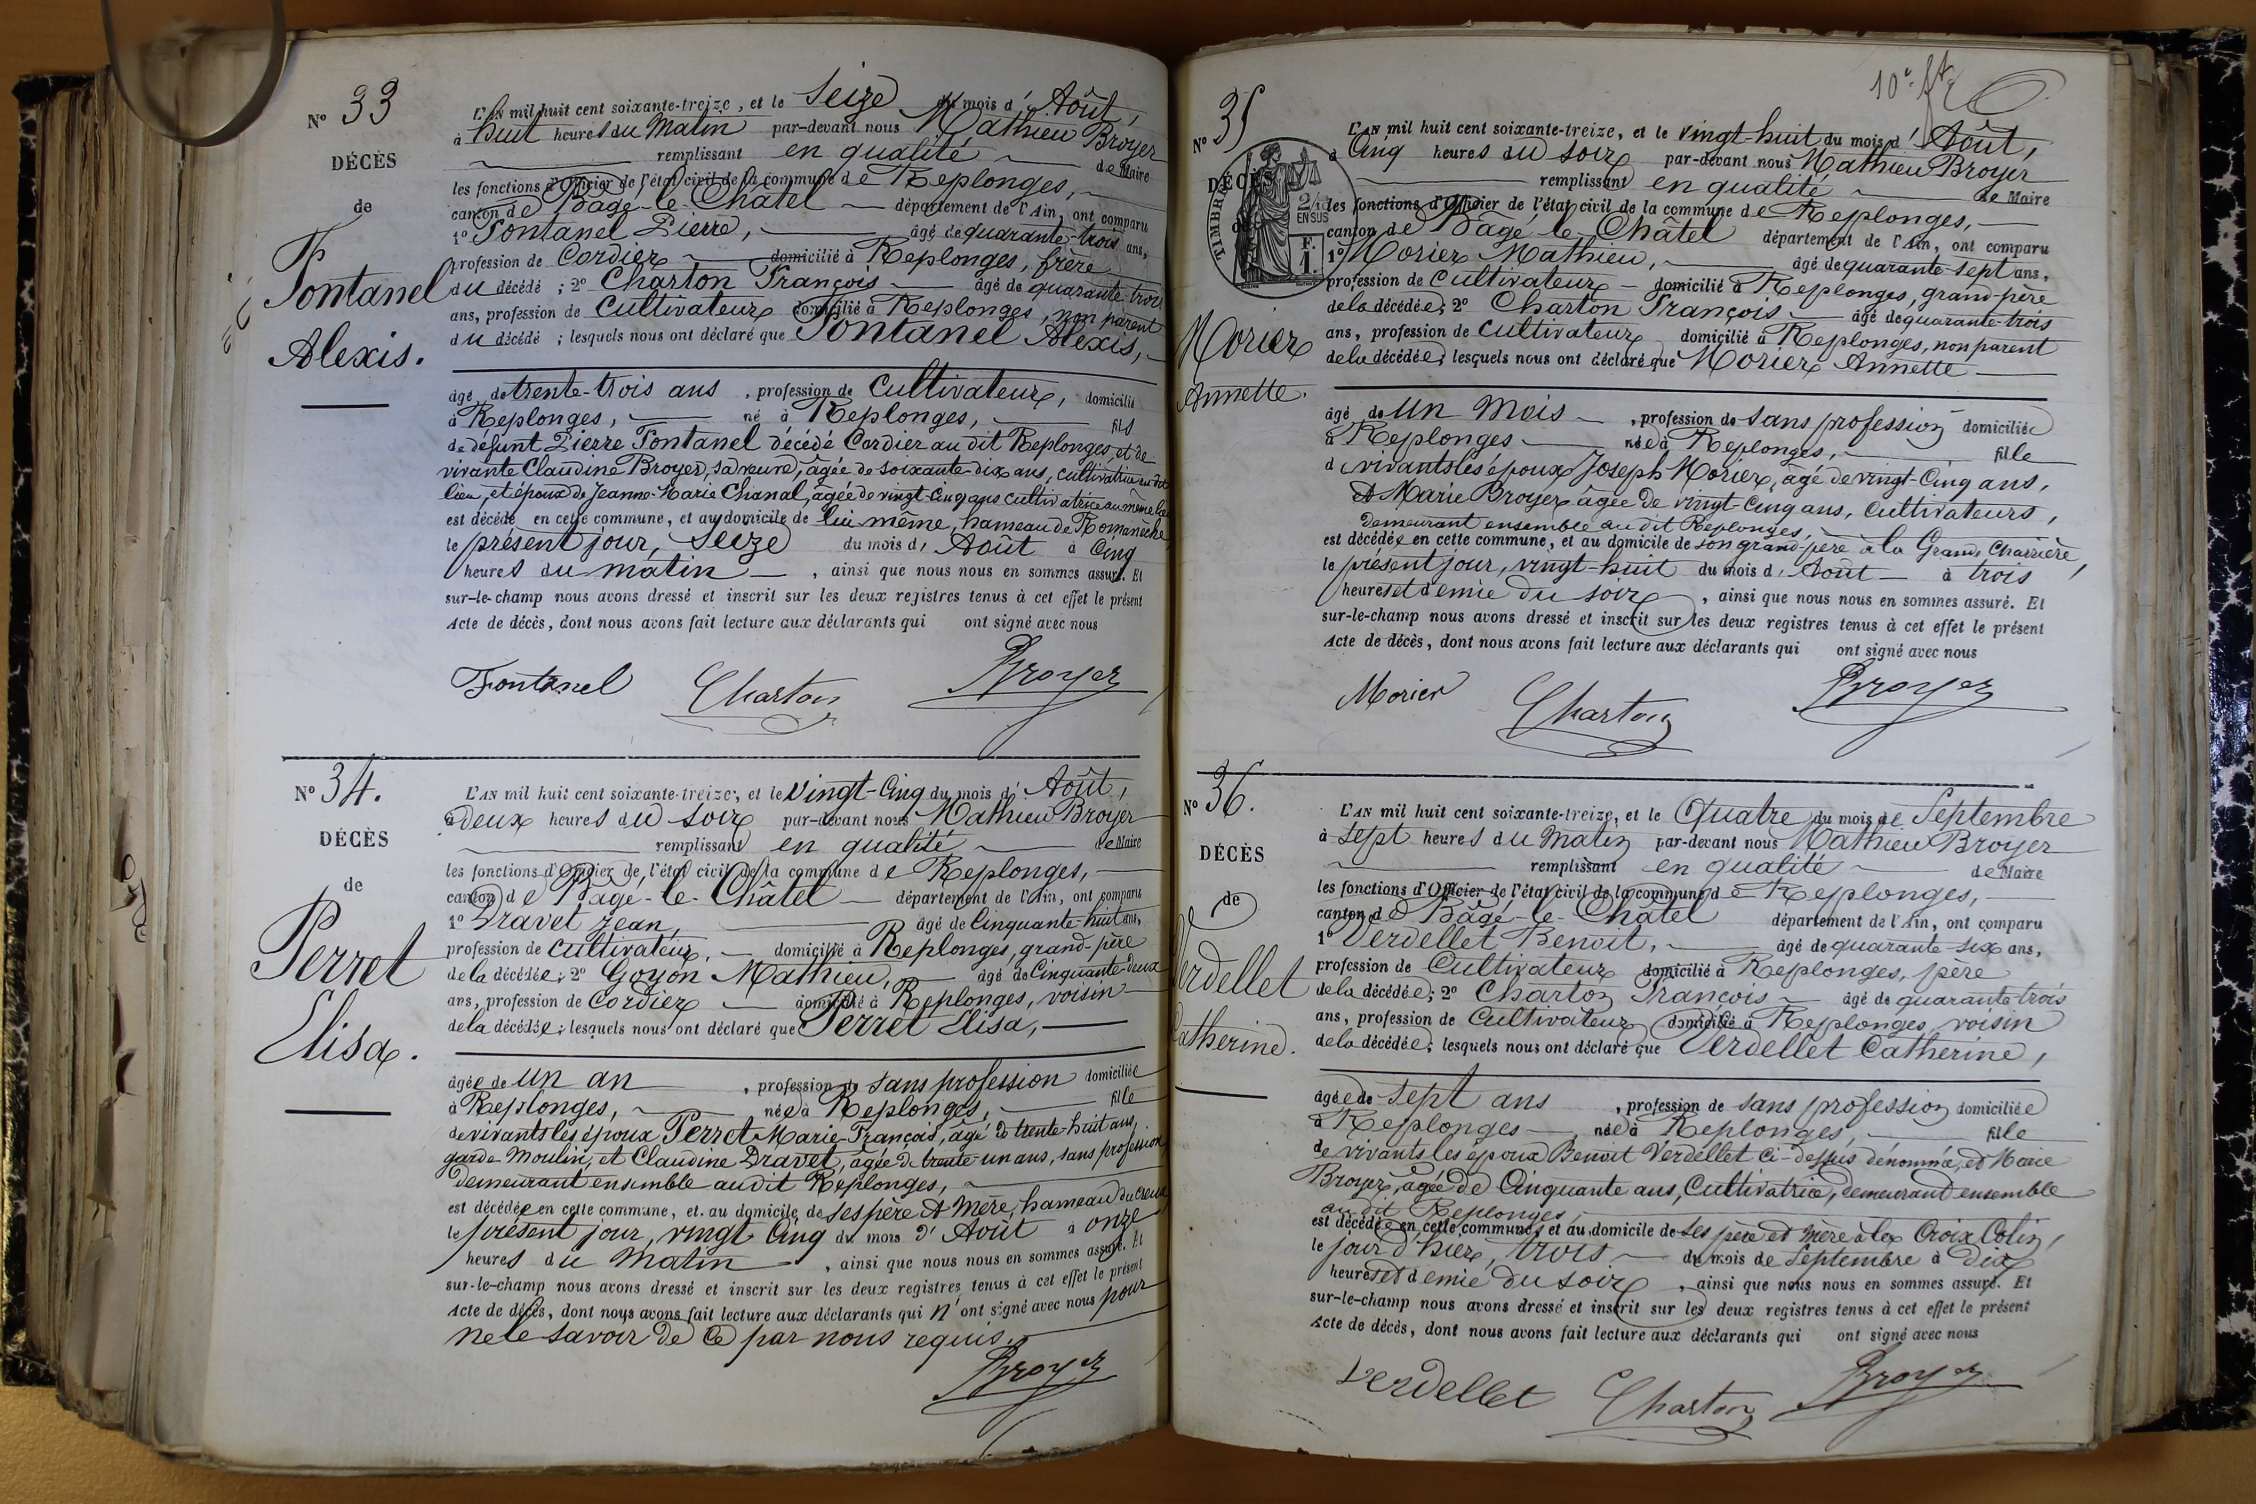 N° 33
DÉCÈS
de
Fontanel
Alexis.
L'AN mil huit cent soixante-treize, et le Seize du mois d'Août,
à huit heures du Matin par-devant nous Mathieu Broyer
remplissant en qualité de Maire
les fonctions d'Officier de l'état civil de la commune de Replonges,
canton de Bâgé-le-Châtel département de l'Ain, ont comparu
1° Fontanel Pierre, âgé de quarante-trois ans,
profession de Cordier domicilié à Replonges, frère
du décédé ; 2° Charton François âgé de quarante-trois
ans, profession de Cultivateur domicilié à Replonges, non parent
du décédé ; lesquels nous ont déclaré que Fontanel Alexis,
âgé de trente-trois ans , profession de Cultivateur, domicilié
à Replonges, né à Replonges, fils
de défunt Pierre Fontanel décédé Cordier au dit Replonges, et de
vivante Claudine Broyer, sa veuve, âgée de soixante-dix ans, cultivatrice au dit
lieu, et époux de Jeanne-Marie Chanal, âgée de vingt-cinq ans cultivatrice au même lieu
est décédé en cette commune, et au domicile de lui même, hameau de Romanèche
le présent jour, Seize du mois d'Août à Cinq
heures du matin , ainsi que nous nous en sommes assuré. Et
sur-le-champ nous avons dressé et inscrit sur les deux registres tenus à cet effet le présent
Acte de décès, dont nous avons fait lecture aux déclarants qui ont signé avec nous
Fontanel Charton Broyer
N° 34.
DÉCÈS
de
Perret
Elisa.
L'AN mil huit cent soixante-treize, et le Vingt-Cinq du mois d'Août,
à deux heures du soir par-devant nous Mathieu Broyer
remplissant en qualité de Maire
les fonctions d'Officier de l'état civil de la commune de Replonges,
canton de Bâgé-le-Châtel département de l'Ain, ont comparu
1° Dravet Jean, âgé de Cinquante-huit ans,
profession de Cultivateur, domicilié à Replonges, grand-père
de la décédée ; 2° Goyon Mathieu, âgé de Cinquante-deux
ans, profession de Cordier domicilié à Replonges, voisin
de la décédée ; lesquels nous ont déclaré que Perret Elisa,
âgée de un an , profession de sans profession domiciliée
à Replonges, née à Replonges, fille
de vivants les époux Perret Marie-François, âgé de trente-huit ans,
garde Moulin, et Claudine Dravet, âgée de trente-un ans, sans profession,
demeurant ensemble audit Replonges,
est décédée en cette commune, et au domicile de ses père et Mère, hameau du Creux,
le présent jour, vingt Cinq du mois d'Août à onze
heures du Matin , ainsi que nous nous en sommes assuré. Et
sur-le-champ nous avons dressé et inscrit sur les deux registres tenus à cet effet le présent
Acte de décès, dont nous avons fait lecture aux déclarants qui n'ont signé avec nous pour
ne le savoir de ce par nous requis.
Broyer
10e
N° 35
DÉCÈS
de
TIMBRE
2/10
EN SUS
F.
1.
Morier
Annette.
L'AN mil huit cent soixante-treize, et le vingt-huit du mois d'Août,
à Cinq heures du soir par-devant nous Mathieu Broyer
remplissant en qualité de Maire
les fonctions d'Officier de l'état civil de la commune de Replonges,
canton de Bâgé-le-Châtel département de l'Ain, ont comparu
1° Morier Mathieu, âgé de quarante-sept ans,
profession de Cultivateur domicilié à Replonges, grand-père
de la décédée ; 2° Charton François âgé de quarante-trois
ans, profession de Cultivateur domicilié à Replonges, non parent
de la décédée ; lesquels nous ont déclaré que Morier Annette
âgé de un mois , profession de sans profession domiciliée
à Replonges née à Replonges, fille
de vivants les époux Joseph Morier, âgé de vingt-Cinq ans,
et Marie Broyer âgée de vingt-cinq ans, Cultivateurs,
demeurant ensemble au dit Replonges,
est décédée en cette commune, et au domicile de son grand-père à la Grande Charrière,
le présent jour, vingt-huit du mois d'Août à trois
heures et demie du soir , ainsi que nous nous en sommes assuré. Et
sur-le-champ nous avons dressé et inscrit sur les deux registres tenus à cet effet le présent
Acte de décès, dont nous avons fait lecture aux déclarants qui ont signé avec nous
Morier Charton Broyer
N° 36.
DÉCÈS
de
Verdellet
Catherine.
L'AN mil huit cent soixante-treize, et le Quatre du mois de Septembre
à sept heures du Matin par-devant nous Mathieu Broyer
remplissant en qualité de Maire
les fonctions d'Officier de l'état civil de la commune de Replonges,
canton de Bâgé-le-Châtel département de l'Ain, ont comparu
1° Verdellet Benoit, âgé de quarante-six ans,
profession de Cultivateur domicilié à Replonges, père
de la décédée ; 2° Charton François âgé de quarante-trois
ans, profession de Cultivateur domicilié à Replonges, voisin
de la décédée ; lesquels nous ont déclaré que Verdellet Catherine,
âgée de sept ans , profession de sans profession domiciliée
à Replonges née à Replonges, fille
de vivants les époux Benoit Verdellet Ci-dessus dénommé, et Marie
Broyer, âgée de Cinquante ans, Cultivatrice, demeurant ensemble
au dit Replonges,
est décédée en cette commune, et au domicile de ses père et Mère à la Croix Colin,
le jour d'hier, trois du mois de Septembre à Dix
heures et demie du soir , ainsi que nous nous en sommes assuré. Et
sur-le-champ nous avons dressé et inscrit sur les deux registres tenus à cet effet le présent
Acte de décès, dont nous avons fait lecture aux déclarants qui ont signé avec nous
Verdellet Charton Broyer